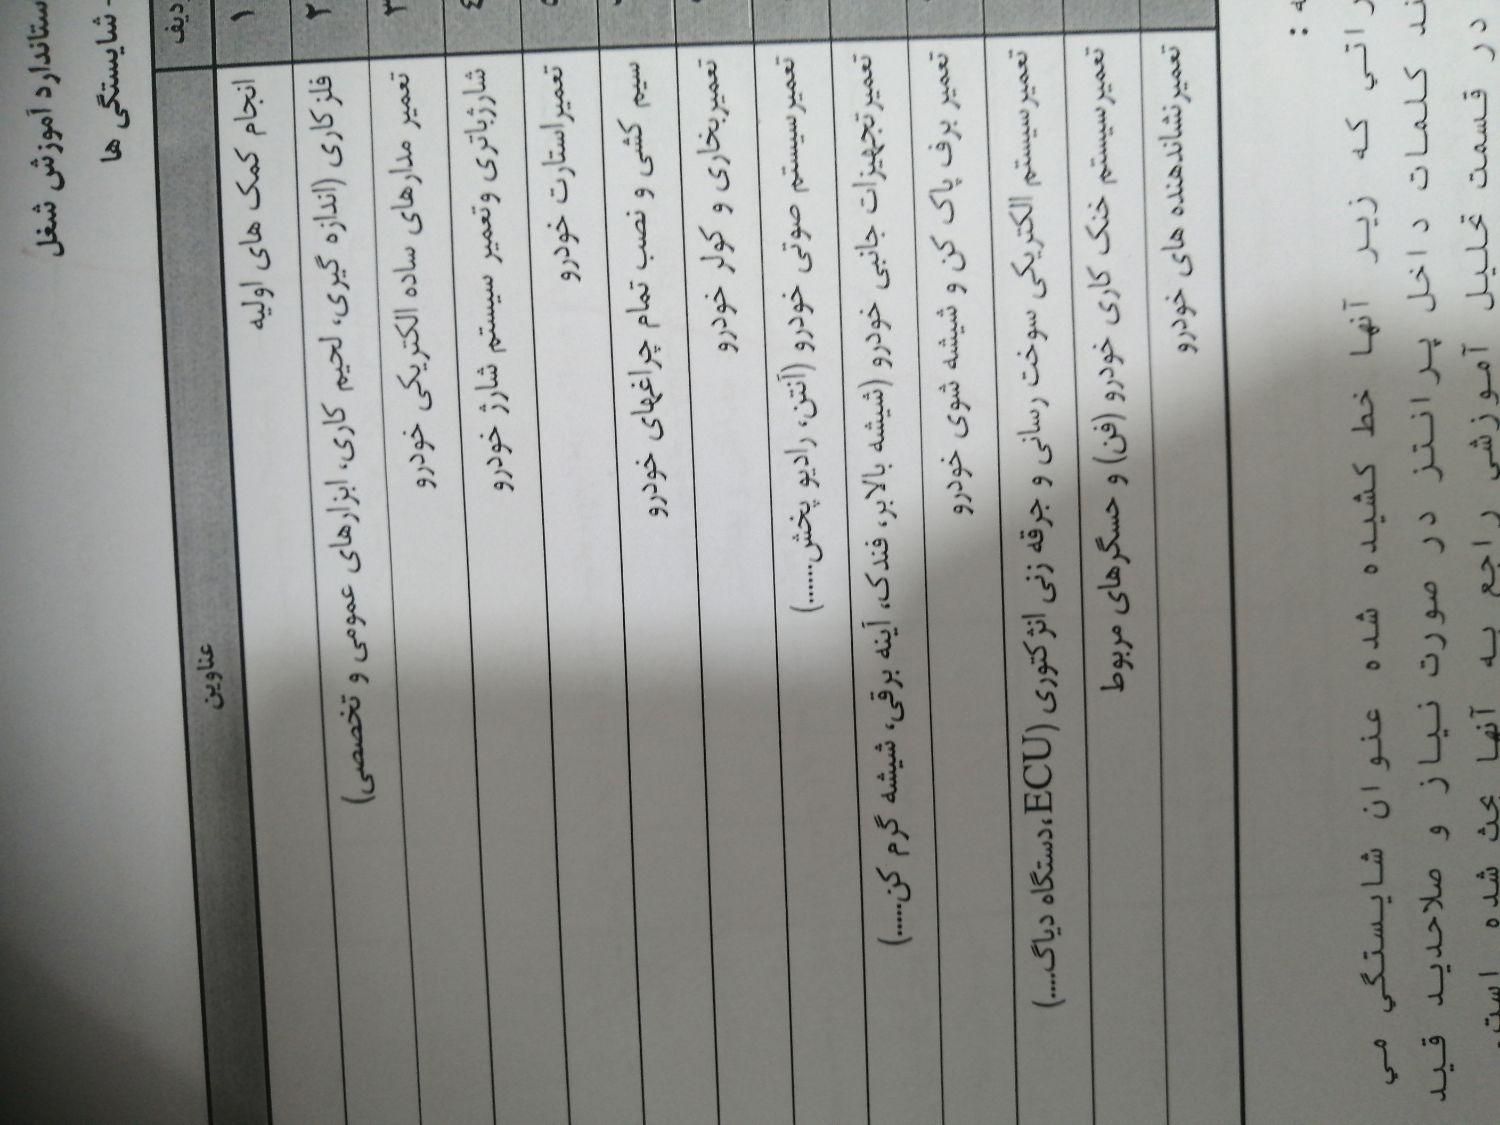 ستاندارد آموزش شغل
- شایستگی ها
ردیف عناوین
۱ انجام کمک های اولیه
۲ فلزکاری (اندازه گیری، لحیم کاری، ابزارهای عمومی و تخصصی)
۳ تعمیر مدارهای ساده الکتریکی خودرو
٤ شارژباتری وتعمیر سیستم شارژ خودرو
تعمیراستارت خودرو
سیم کشی و نصب تمام چراغهای خودرو
تعمیربخاری و کولر خودرو
تعمیرسیستم صوتی خودرو (آنتن، رادیو پخش......)
تعمیرتجهیزات جانبی خودرو (شیشه بالابر، فندک، آینه برقی، شیشه گرم کن......)
تعمیر برف پاک کن و شیشه شوی خودرو
تعمیرسیستم الکتریکی سوخت رسانی و جرقه زنی انژکتوری (ECU،دستگاه دیاگ.....)
تعمیرسیستم خنک کاری خودرو (فن) و حسگرهای مربوط
تعمیرنشاندهنده های خودرو
ه :
راتي که زیر آنها خط کشیده شده عنوان شایستگي مي
ند کلمات داخل پرانتز در صورت نیاز و صلاحدید قید
در قسمت تحلیل آموزشی راجع به آنها بحث شده است.